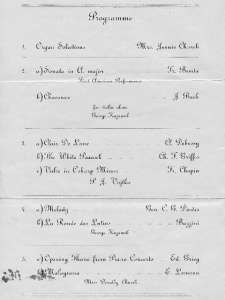 Programme
1. Organ Selections Mrs. Jennie Church
2. a) Sonata in A major Fr. Benda
First American Performance
b) Chaconne J. Bach
for violin alone
George
3. a) Clair De Lune Cl. Debussy
b) The White Peacock Ch. T. Griffes
c) Valse in C sharp Minor Fr. Chopin
P. J.
4. a) Melody Gen. C. G. Dawes
b) La Ronde des Lutins Bazzini
George
5. a) Opening Theme from Piano Concerto Ed. Grieg
b) Malaguena E. Lecuona
Miss Dorothy